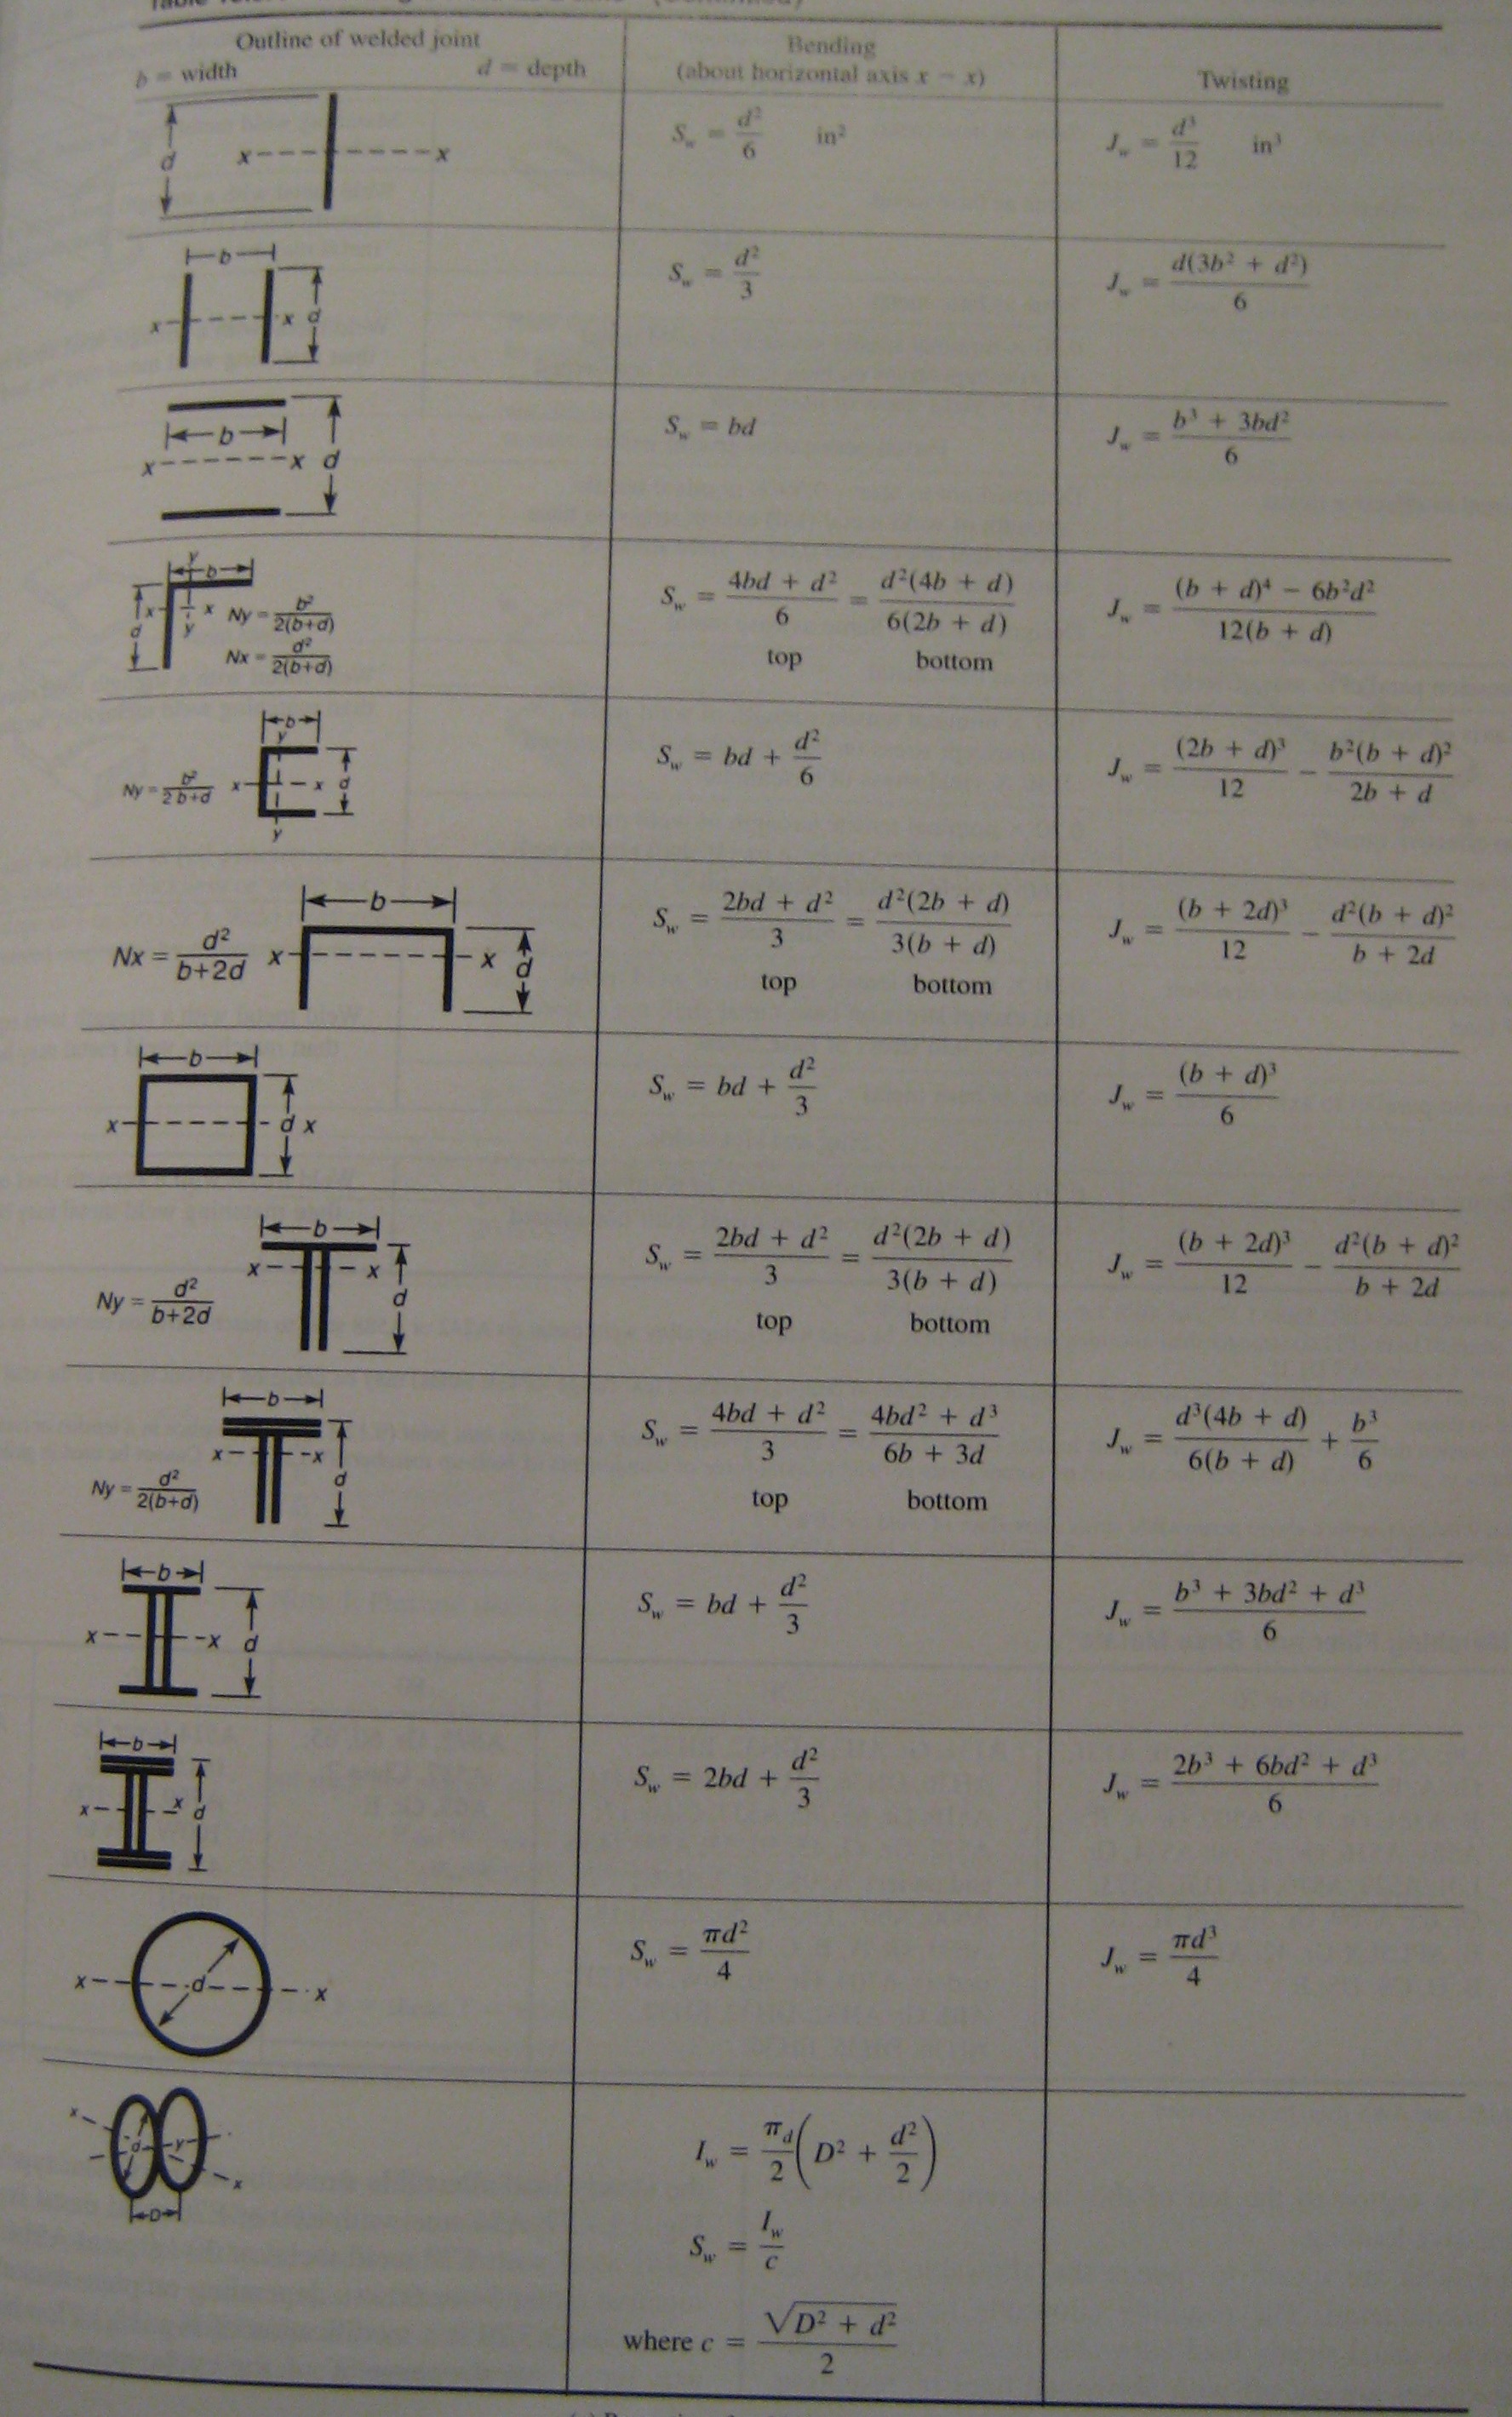 Outline of welded joint
b = width d = depth
Bending
(about horizontal axis x - x)
Twisting
d
x x
S_w = d²/6 in²
J_w = d³/12 in³
b
x x d
S_w = d²/3
J_w = d(3b² + d²)/6
b
x x d
S_w = bd
J_w = (b³ + 3bd²)/6
y
b
d x x Ny = b²/2(b+d)
y
Nx = d²/2(b+d)
S_w = (4bd + d²)/6 = d²(4b + d)/6(2b + d)
top bottom
J_w = ((b + d)⁴ - 6b²d²)/12(b + d)
b
y
Ny = b²/2b+d x x d
y
S_w = bd + d²/6
J_w = (2b + d)³/12 - b²(b + d)²/(2b + d)
b
Nx = d²/b+2d x x d
S_w = (2bd + d²)/3 = d²(2b + d)/3(b + d)
top bottom
J_w = (b + 2d)³/12 - d²(b + d)²/(b + 2d)
b
x d x
S_w = bd + d²/3
J_w = (b + d)³/6
b
x x
d
Ny = d²/b+2d
S_w = (2bd + d²)/3 = d²(2b + d)/3(b + d)
top bottom
J_w = (b + 2d)³/12 - d²(b + d)²/(b + 2d)
b
x x
d
Ny = d²/2(b+d)
S_w = (4bd + d²)/3 = (4bd² + d³)/(6b + 3d)
top bottom
J_w = d³(4b + d)/6(b + d) + b³/6
b
x x d
S_w = bd + d²/3
J_w = (b³ + 3bd² + d³)/6
b
x x d
S_w = 2bd + d²/3
J_w = (2b³ + 6bd² + d³)/6
x d x
S_w = πd²/4
J_w = πd³/4
x
d y
x
D
I_w = πd/2 (D² + d²/2)
S_w = I_w/c
where c = √(D² + d²)/2